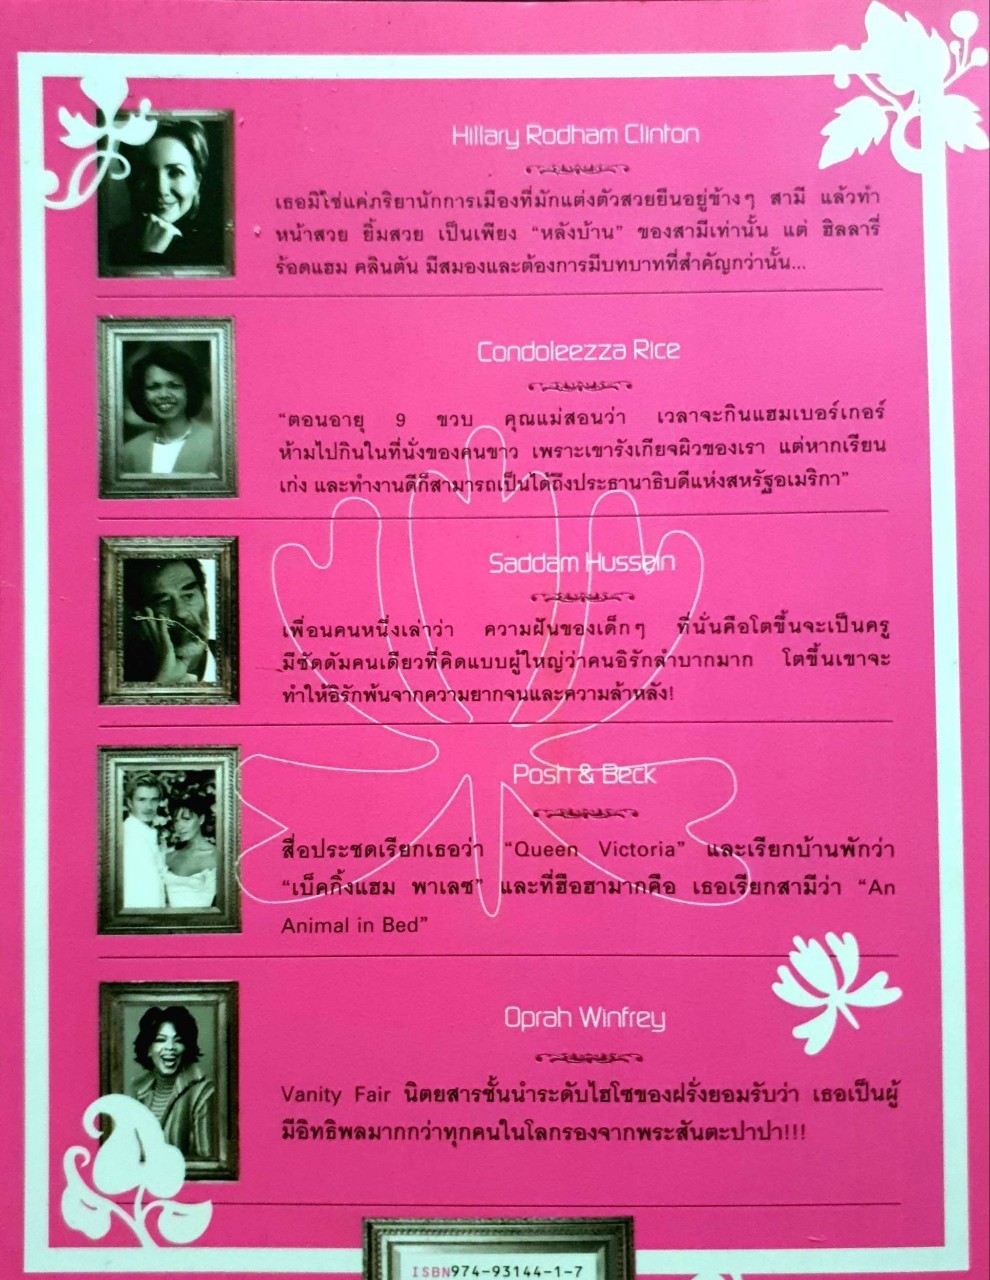 Hillary Rodham Clinton
เธอมิใช่แค่ภริยานักการเมืองที่มักแต่งตัวสวยยืนอยู่ข้างๆ สามี แล้วทำ
หน้าสวย ยิ้มสวย เป็นเพียง “หลังบ้าน” ของสามีเท่านั้น แต่ ฮิลลารี่
ร้อดแฮม คลินตัน มีสมองและต้องการมีบทบาทที่สำคัญกว่านั้น...
Condoleezza Rice
“ตอนอายุ 9 ขวบ คุณแม่สอนว่า เวลาจะกินแฮมเบอร์เกอร์
ห้ามไปกินในที่นั่งของคนขาว เพราะเขารังเกียจผิวของเรา แต่หากเรียน
เก่ง และทำงานดีก็สามารถเป็นได้ถึงประธานาธิบดีแห่งสหรัฐอเมริกา”
Saddam Hussein
เพื่อนคนหนึ่งเล่าว่า ความฝันของเด็กๆ ที่นั่นคือโตขึ้นจะเป็นครู
มีซัดดัมคนเดียวที่คิดแบบผู้ใหญ่ว่าคนอิรักลำบากมาก โตขึ้นเขาจะ
ทำให้อิรักพ้นจากความยากจนและความล้าหลัง!
Posh & Beck
สื่อประชดเรียกเธอว่า “Queen Victoria” และเรียกบ้านพักว่า
“เบ็คกิ้งแฮม พาเลซ” และที่ฮือฮามากคือ เธอเรียกสามีว่า “An
Animal in Bed”
Oprah Winfrey
Vanity Fair นิตยสารชั้นนำระดับไฮโซของฝรั่งยอมรับว่า เธอเป็นผู้
มีอิทธิพลมากกว่าทุกคนในโลกรองจากพระสันตะปาปา!!!
ISBN974-93144-1-7